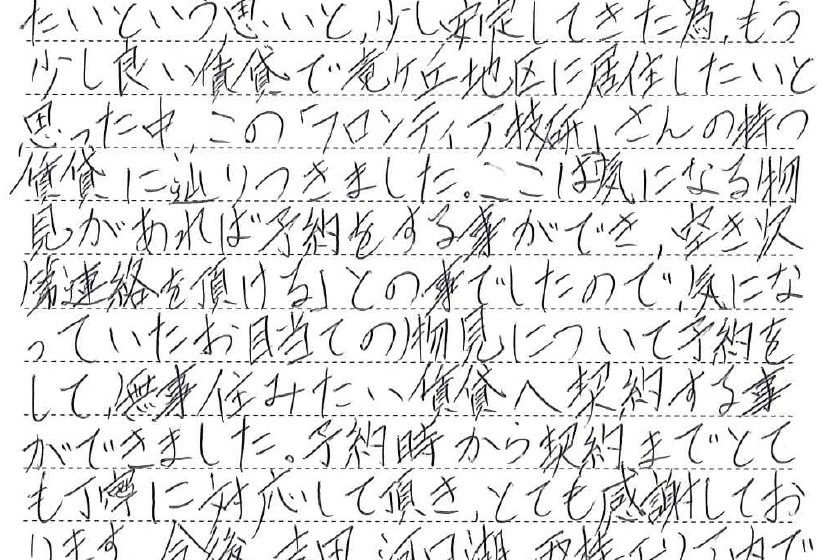 たいという思いと、少し安定してきた為、もう
少し良い賃貸で竜ヶ丘地区に居住したいと
思った中、この「フロンティア技研」さんの持つ
賃貸に辿りつきました。ここは気になる物
見があれば予約をする事ができ、空き次
第連絡を頂ける」との事でしたので、気にな
っていたお目当ての物見について予約を
して、無事住みたい賃貸へ契約する事
ができました。予約時から契約までとて
も丁寧に対応して頂き、とても感謝してお
ります。今後、吉田、河口湖、西桂エリア内で